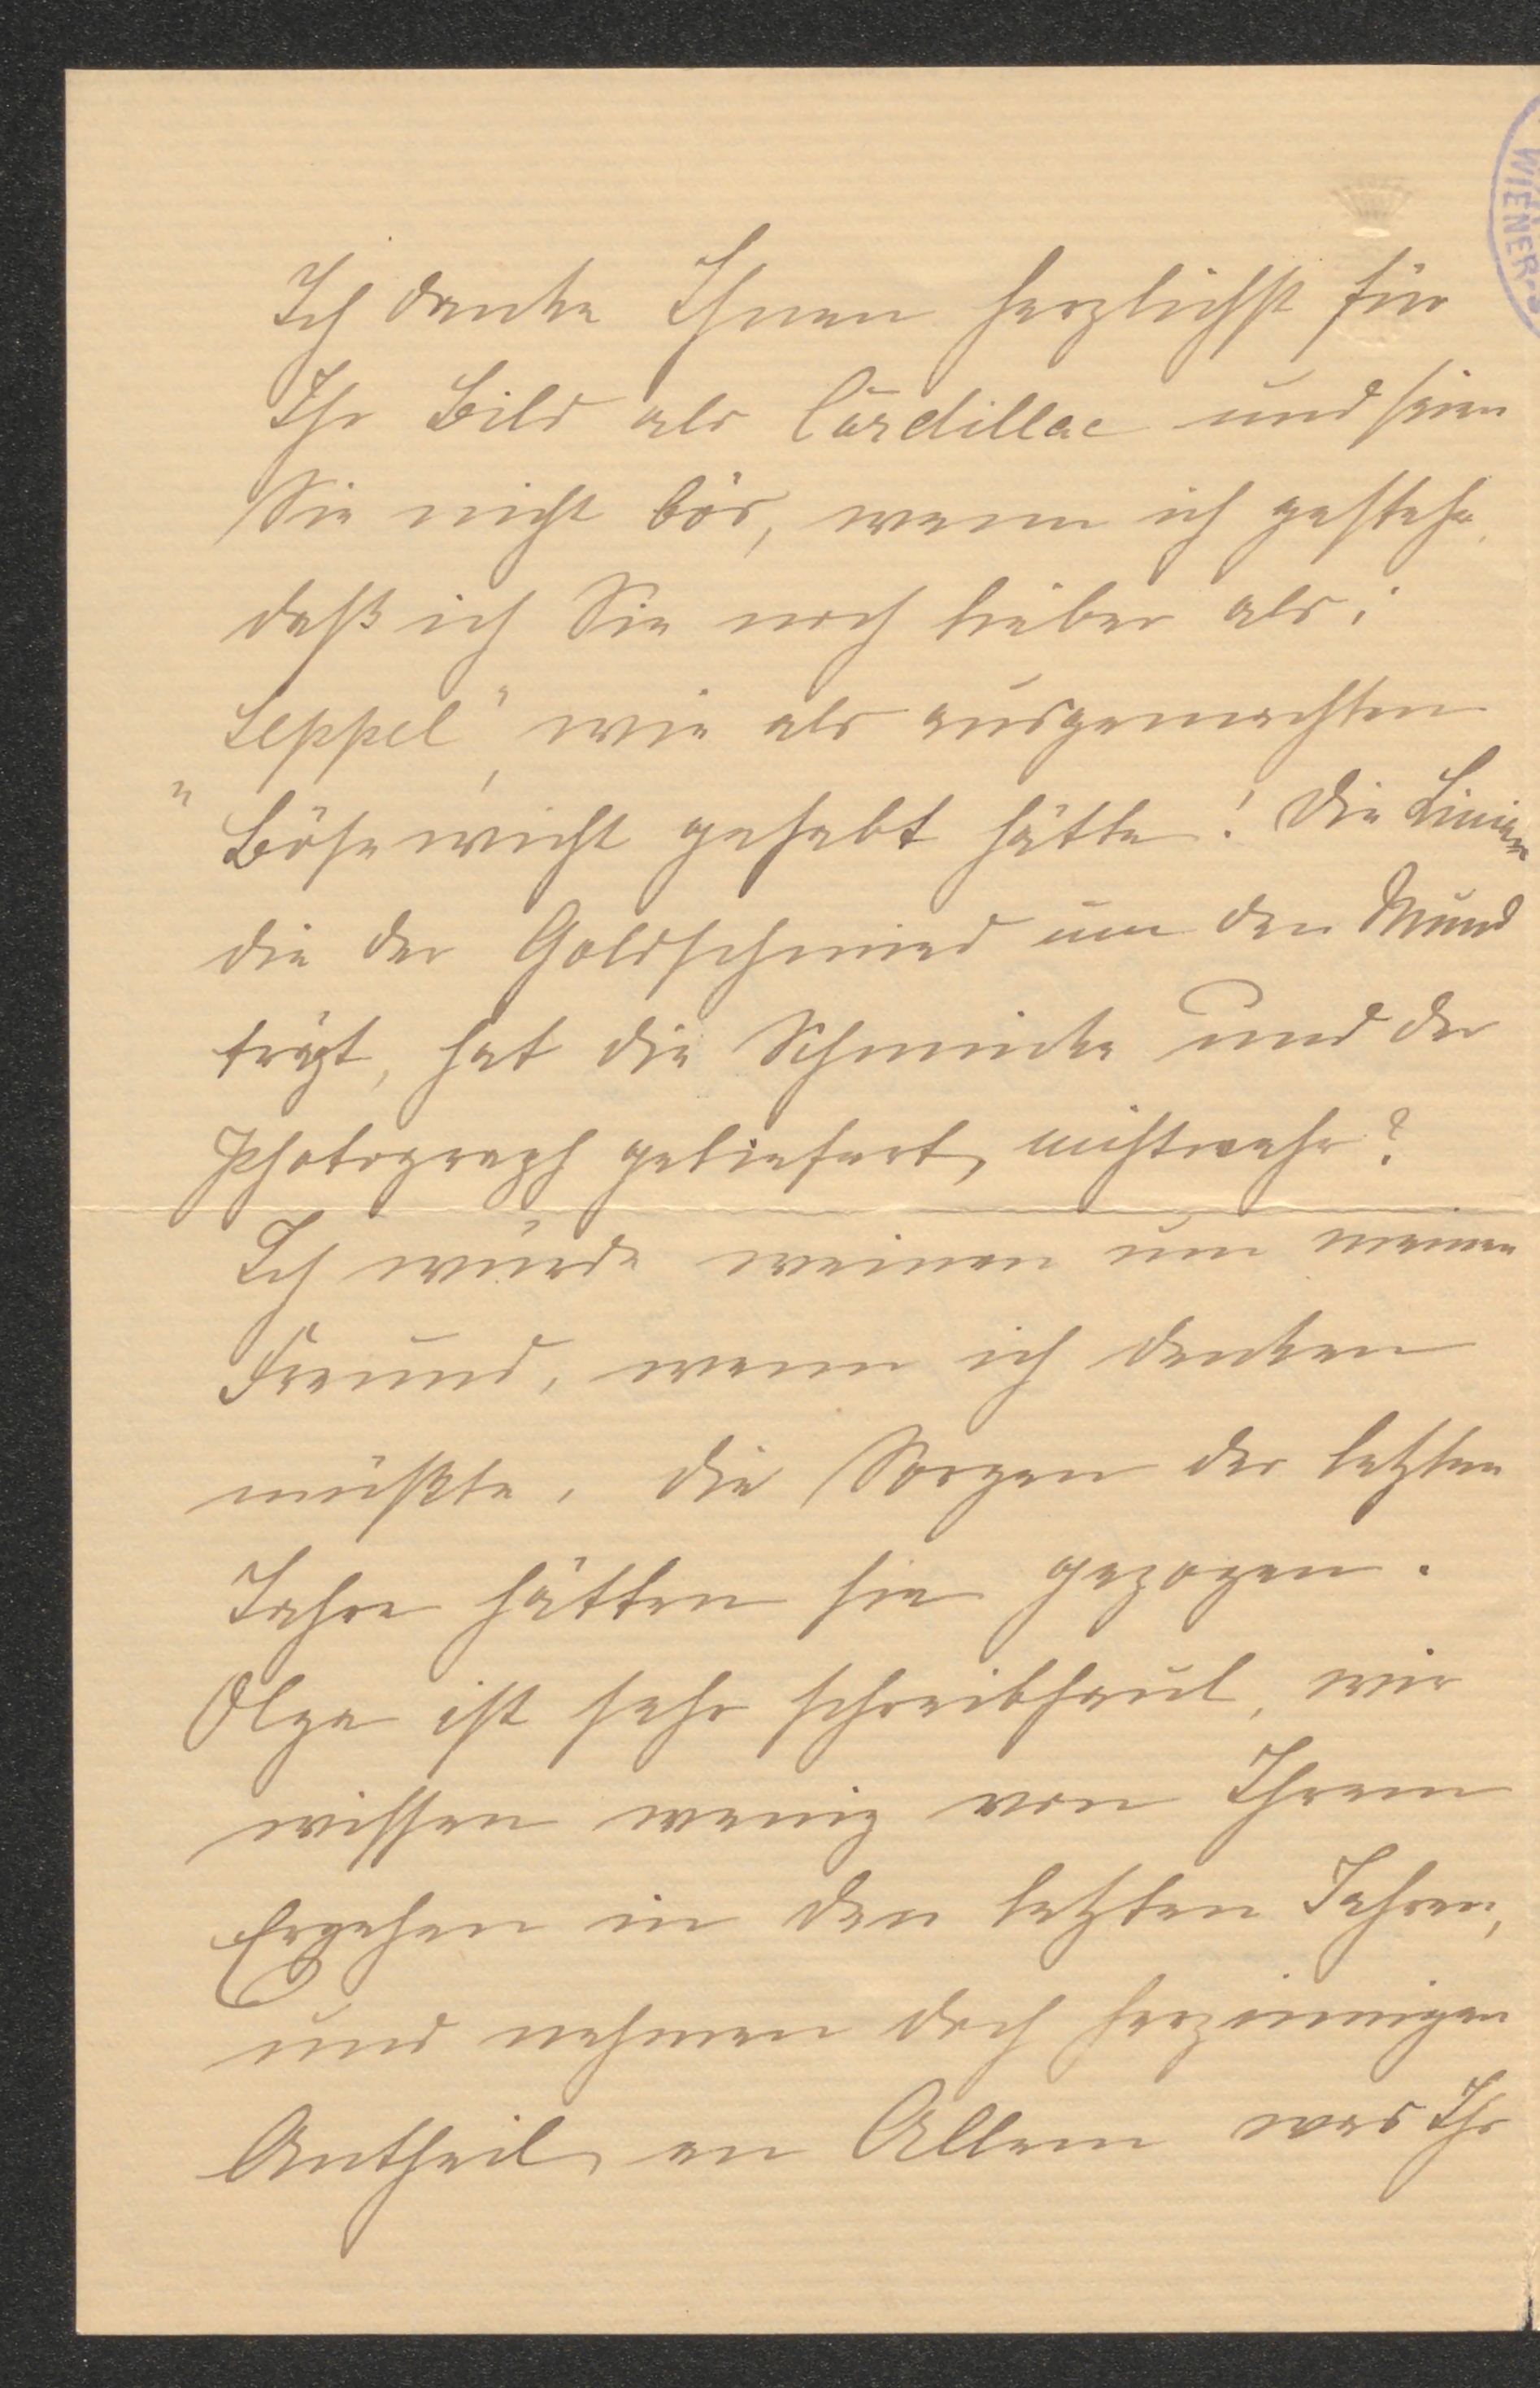 WIENER
Ich danke Ihnen herzlichst für
Ihr Bild als Cardillac und seien
Sie nicht bös, wenn ich gestehe,
daß ich Sie noch lieber als:
Seppel", wie als ausgemachten
"Bösewicht gehabt hätte! Die Linien
die der Goldschmied um den Mund
trägt, hat die Schminke und der
Photograph geliefert, nichtwahr?
Ich würde weinen um meinen
Freund, wenn ich denken
müßte, die Sorgen der letzten
Jahre hätten sie gezogen.
Olga ist sehr schreibfaul, wir
wissen wenig von Ihrem
Ergehen in den letzten Jahren,
und nehmen doch herzinnigen
Antheil an Allem was Ihr